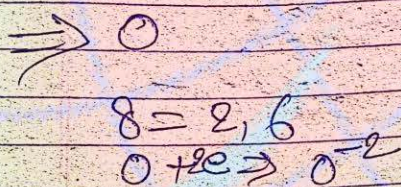 ⇒ O
8 = 2, 6
O +2e ⇒ O⁻²